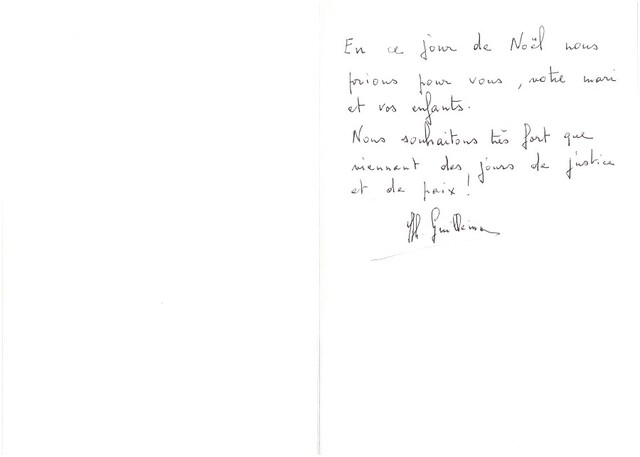 En ce jour de Noël nous
prions pour vous, votre mari
et vos enfants.
Nous souhaitons très fort que
viennent des jours de justice
et de paix !